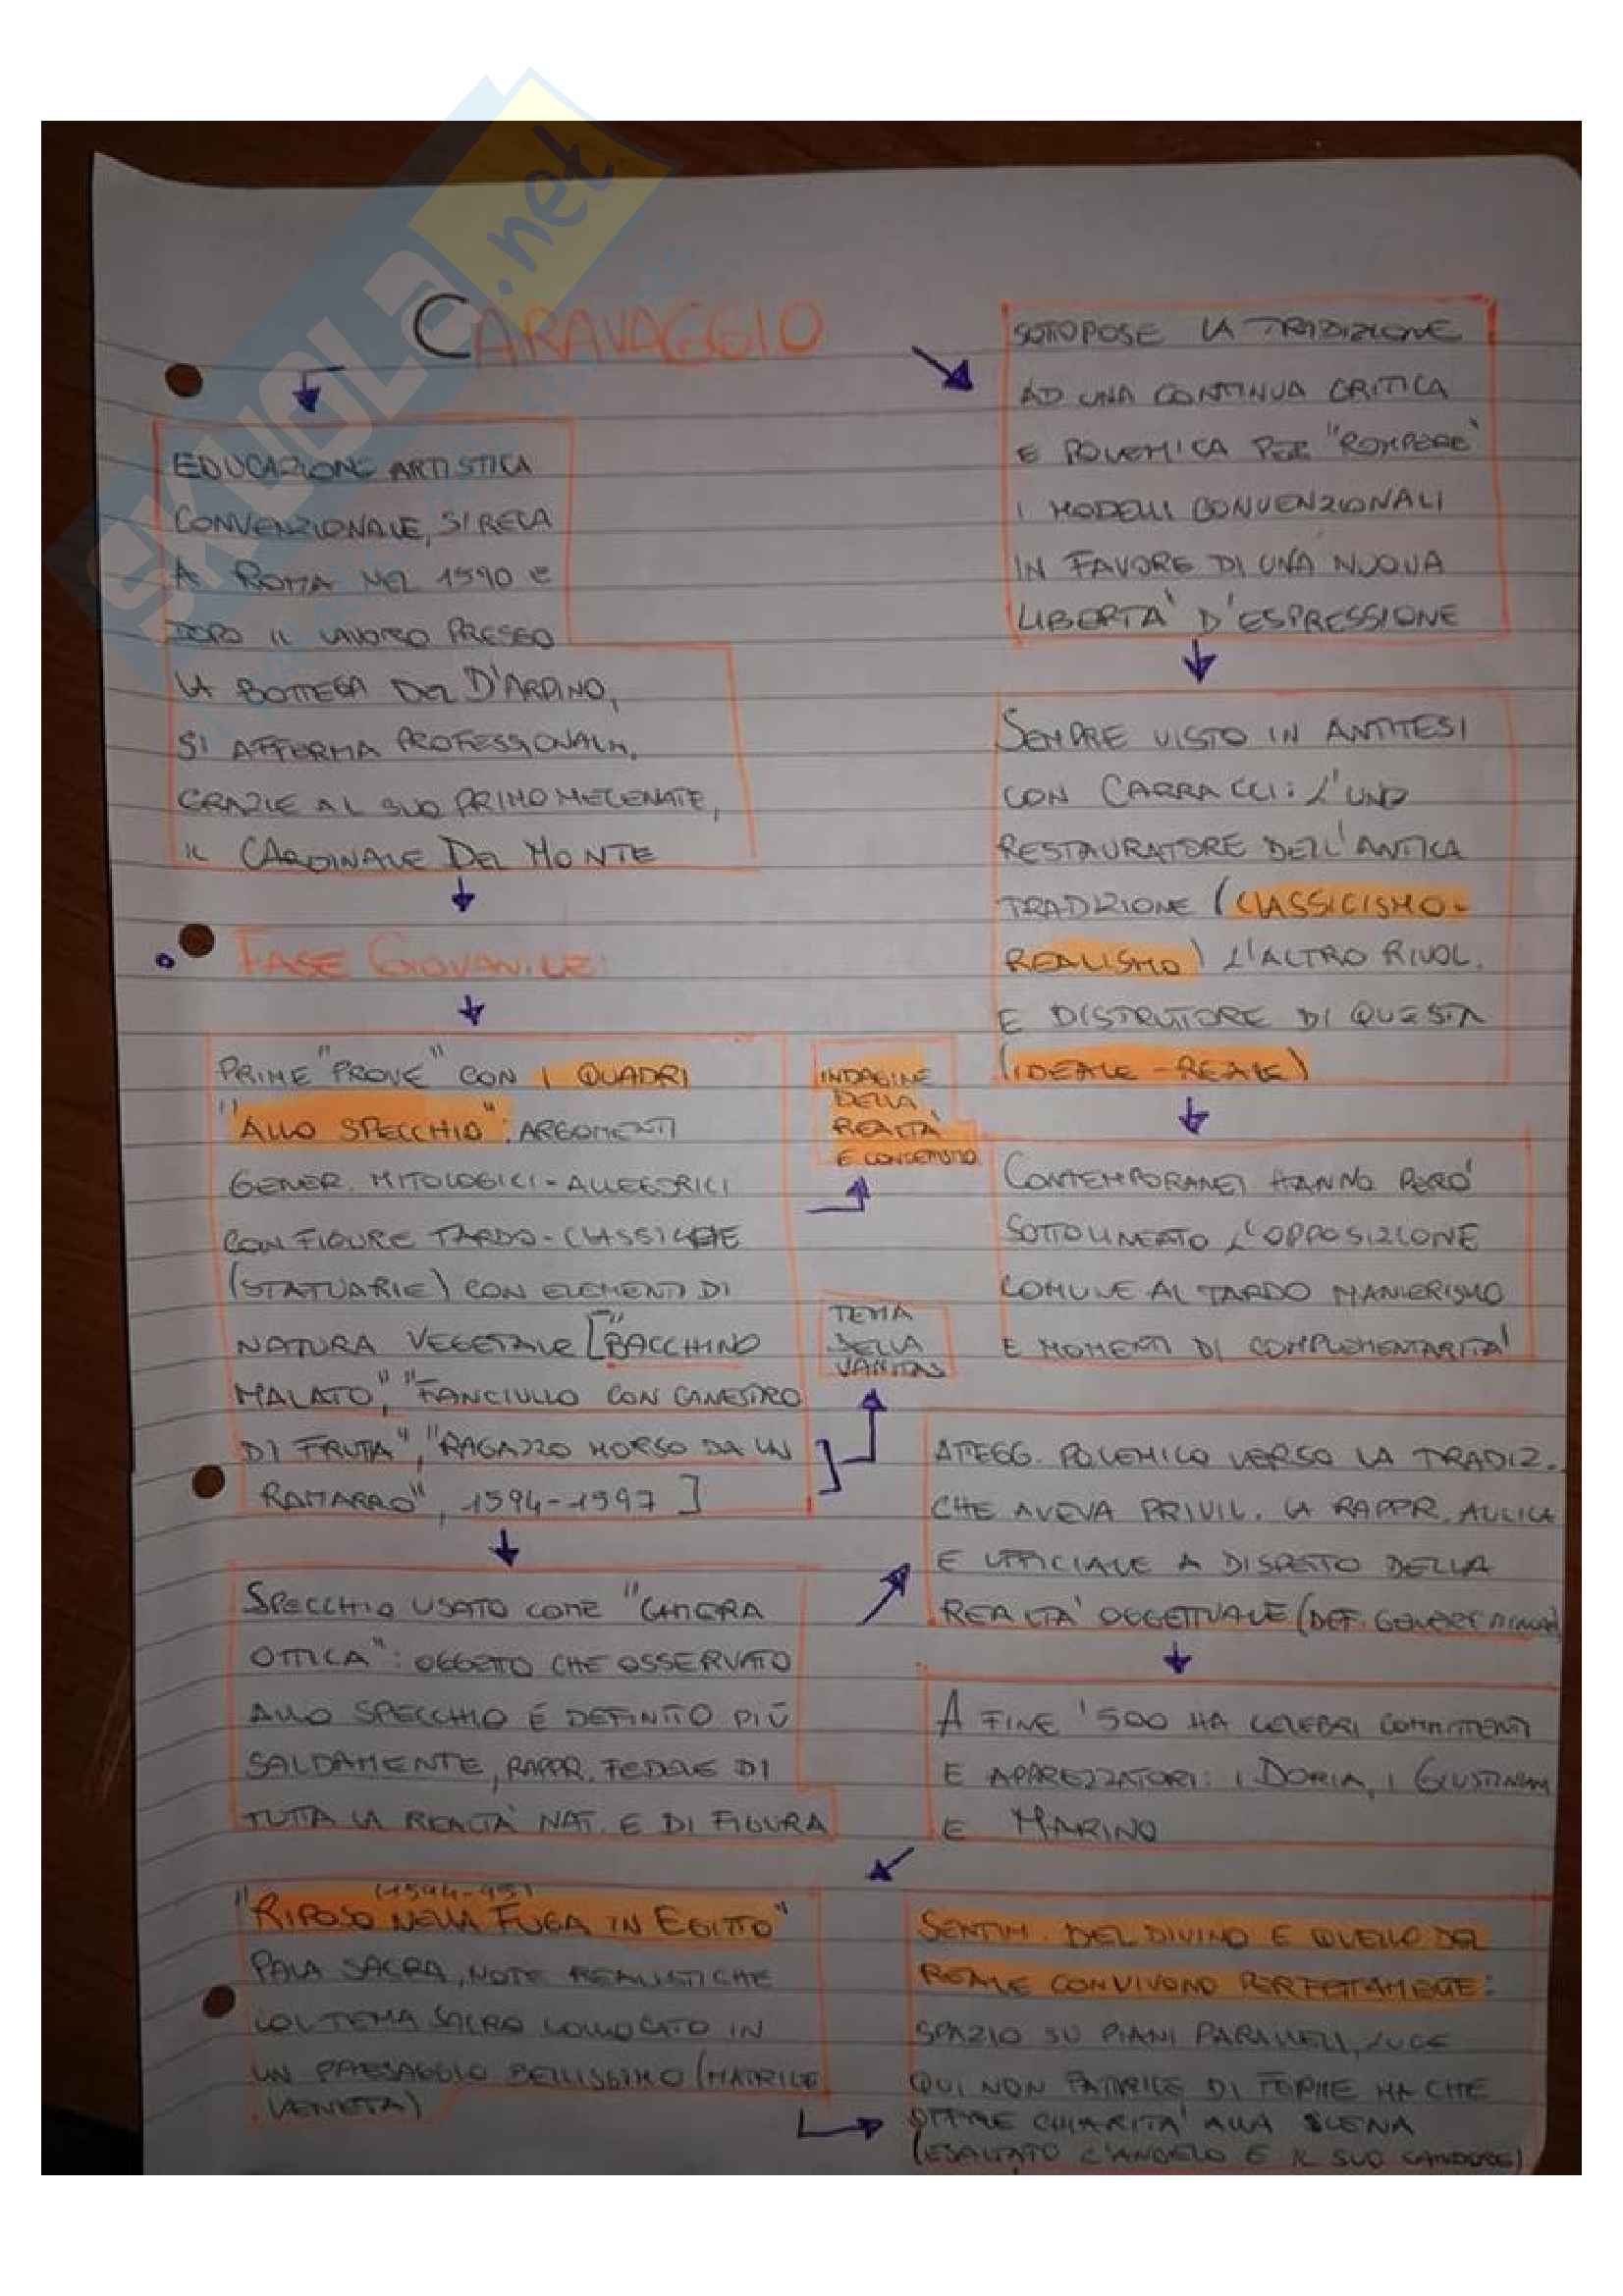 SKUOLa.net
CARAVAGGIO
EDUCAZIONE ARTISTICA
CONVENZIONALE, SI RECA
A ROMA NEL 1590 E
DOPO IL LAVORO PRESSO
LA BOTTEGA DEL D'ARPINO,
SI AFFERMA PROFESSIONALM.
GRAZIE AL SUO PRIMO MECENATE,
IL CARDINALE DEL MONTE
SOTTOPOSE LA TRADIZIONE
AD UNA CONTINUA CRITICA
E POLEMICA PER "ROMPERE"
I MODELLI CONVENZIONALI
IN FAVORE DI UNA NUOVA
LIBERTA' D'ESPRESSIONE
SEMPRE VISTO IN ANTITESI
CON CARRACCI: L'UNO
RESTAURATORE DELL'ANTICA
TRADIZIONE (CLASSICISMO-
REALISMO) L'ALTRO RIVOL.
E DISTRUTTORE DI QUESTA
(IDEALE - REALE)
CONTEMPORANEI HANNO PERO'
SOTTOLINEATO L'OPPOSIZIONE
COMUNE AL TARDO MANIERISMO
E MOMENTI DI COMPLEMENTARITA'
FASE GIOVANILE:
PRIME "PROVE" CON I QUADRI
"ALLO SPECCHIO": ARGOMENTI
GENER. MITOLOGICI-ALLEGORICI
CON FIGURE TARDO-CLASSICHE
(STATUARIE) CON ELEMENTI DI
NATURA VEGETALE ["BACCHINO
MALATO", "FANCIULLO CON CANESTRO
DI FRUTTA", "RAGAZZO MORSO DA UN
RAMARRO", 1594-1597]
INDAGINE
DELLA
REALTÀ
E
TEMA
DELLA
VANITAS
SPECCHIO USATO COME "CAMERA
OTTICA": OGGETTO CHE OSSERVATO
ALLO SPECCHIO È DEFINITO PIÙ
SALDAMENTE, RAPPR. FEDELE DI
TUTTA LA REALTA' NAT. E DI FIGURA
ATTEGG. POLEMICO VERSO LA TRADIZ.
CHE AVEVA PRIVIL. LA RAPPR. AULICA
E UFFICIALE A DISPETTO DELLA
REALTA' OGGETTUALE (DEF. GENERE
A FINE '500 HA CELEBRI COMMITTENTI
E APPREZZATORI: I DORIA, I GIUSTINIANI
E MARINO
(1594-95)
"RIPOSO NELLA FUGA IN EGITTO"
PALA SACRA, NOTE REALISTICHE
COL TEMA SACRO COLLOCATO IN
UN PAESAGGIO BELLISSIMO (MATRICE
VENETA)
SENTIM. DEL DIVINO E QUELLO DEL
REALE CONVIVONO PERFETTAMENTE:
SPAZIO SU PIANI PARALLELI, LUCE
QUI NON FATTRICE DI FORME MA CHE
CHIARITA' ALLA SCENA
(ESALTATO L'ANGELO E IL SUO CANDORE)